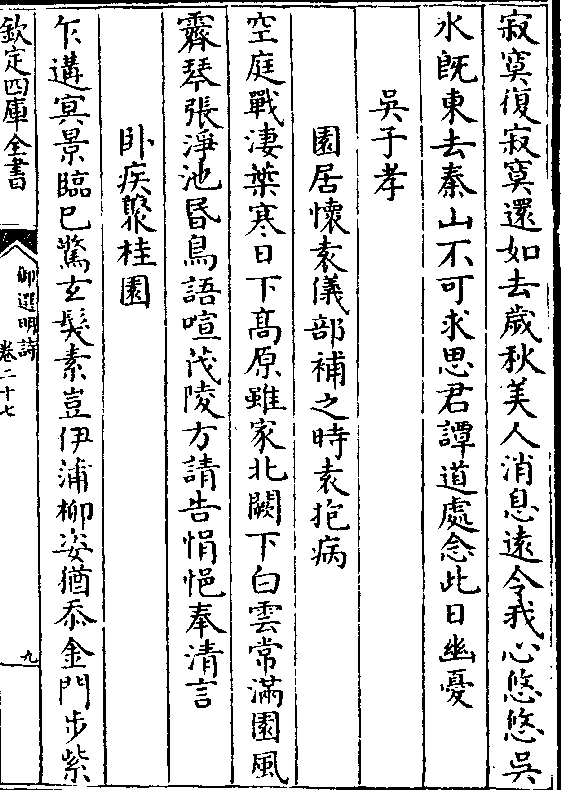 寂寞復寂寞還如去歲秋美人消息遠令我心悠悠吳
水既東去秦山不可求思君譚道處念此日幽憂
吳子孝
園居懷袁儀部補之時袁抱病
空庭戰淒葉寒日下髙原雖家北闕下白雲常滿園風
霽琴張淨池昏鳥語喧茂陵方請告悁悒奉清言
卧疾聚桂園
乍遘㝠景臨已驚玄髮素豈伊蒲柳姿猶忝金門步紫
欽定四庫全書
御選明詩
卷二十七
九